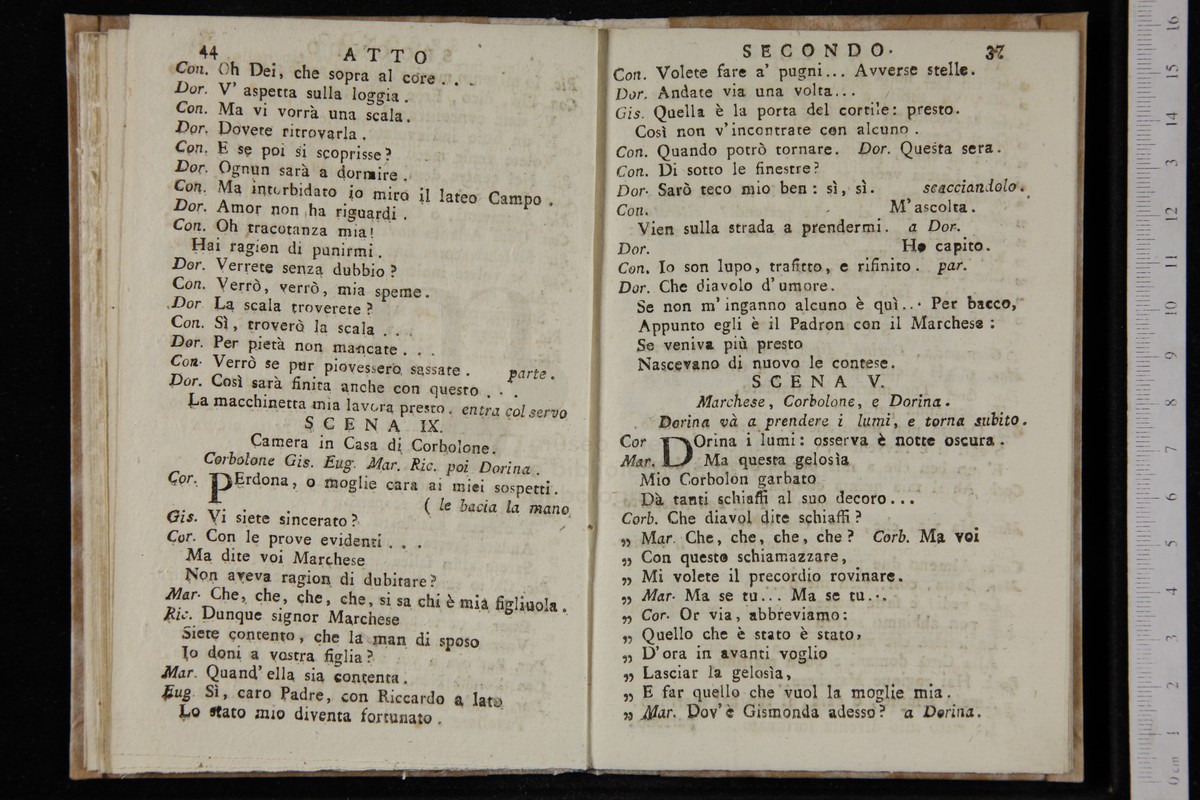 44 ATTO
Con. Oh Dei, che sopra al core . . .
Dor. V' aspetta sulla loggia .
Con. Ma vi vorrà una scala.
Dor. Dovete ritrovarla .
Con. E se poi si scoprisse ?
Dor. Ognun sarà a dormire .
Con. Ma intorbidato io miro il lateo Campo .
Dor. Amor non ha riguardi .
Con. Oh tracotanza mia !
Hai ragion di punirmi .
Dor. Verrete senza dubbio ?
Con. Verrò, verrò, mia speme .
Dor La scala troverete ?
Con. Sì, troverò la scala . . .
Dor. Per pietà non mancate . . .
Con. Verrò se pur piovessero sassate . parte .
Dor. Così sarà finita anche con questo . . .
La macchinetta mia lavora presto . entra col servo
SCENA IX.
Camera in Casa di Corbolone.
Corbolone Gis. Eug. Mar. Ric. poi Dorina .
Cor. PErdona, o moglie cara ai miei sospetti .
( le bacia la mano
Gis. Vi siete sincerato ?
Cor. Con le prove evidenti . . .
Ma dite voi Marchese
Non aveva ragion di dubitare ?
Mar. Che, che, che, che, si sa chi è mia figliuola .
Ric. Dunque signor Marchese
Siete contento, che la man di sposo
Io doni a vostra figlia ?
Mar. Quand' ella sia contenta .
Eug. Sì, caro Padre, con Riccardo a lato
Lo stato mio diventa fortunato .
SECONDO. 37
Con. Volete fare a' pugni... Avverse stelle.
Dor. Andate via una volta...
Gis. Quella è la porta del cortile : presto.
Così non v' incontrate con alcuno .
Con. Quando potrò tornare. Dor. Questa sera .
Con. Di sotto le finestre ?
Dor. Sarò teco mio ben : sì, sì. scacciandolo .
Con. M' ascolta .
Vien sulla strada a prendermi. a Dor.
Dor. Ho capito .
Con. Io son lupo, trafitto, e rifinito . par.
Dor. Che diavolo d' umore .
Se non m' inganno alcuno è quì... Per bacco,
Appunto egli è il Padron con il Marchese :
Se veniva più presto
Nascevano di nuovo le contese.
SCENA V.
Marchese, Corbolone, e Dorina .
Dorina và a prendere i lumi, e torna subito .
Cor DOrina i lumi : osserva è notte oscura .
Mar. Ma questa gelosìa
Mio Corbolon garbato
Dà tanti schiaffi al suo decoro...
Corb. Che diavol dite schiaffi ?
„ Mar. Che, che, che, che ? Corb. Ma voi
„ Con questo schiamazzare,
„ Mi volete il precordio rovinare.
„ Mar. Ma se tu... Ma se tu...
„ Cor. Or via, abbreviamo :
„ Quello che è stato è stato,
„ D' ora in avanti voglio
„ Lasciar la gelosìa,
„ E far quello che vuol la moglie mia .
„ Mar. Dov' è Gismonda adesso ? a Dorina .
0 cm 1 2 3 4 5 6 7 8 9 10 11 12 13 14 15 16